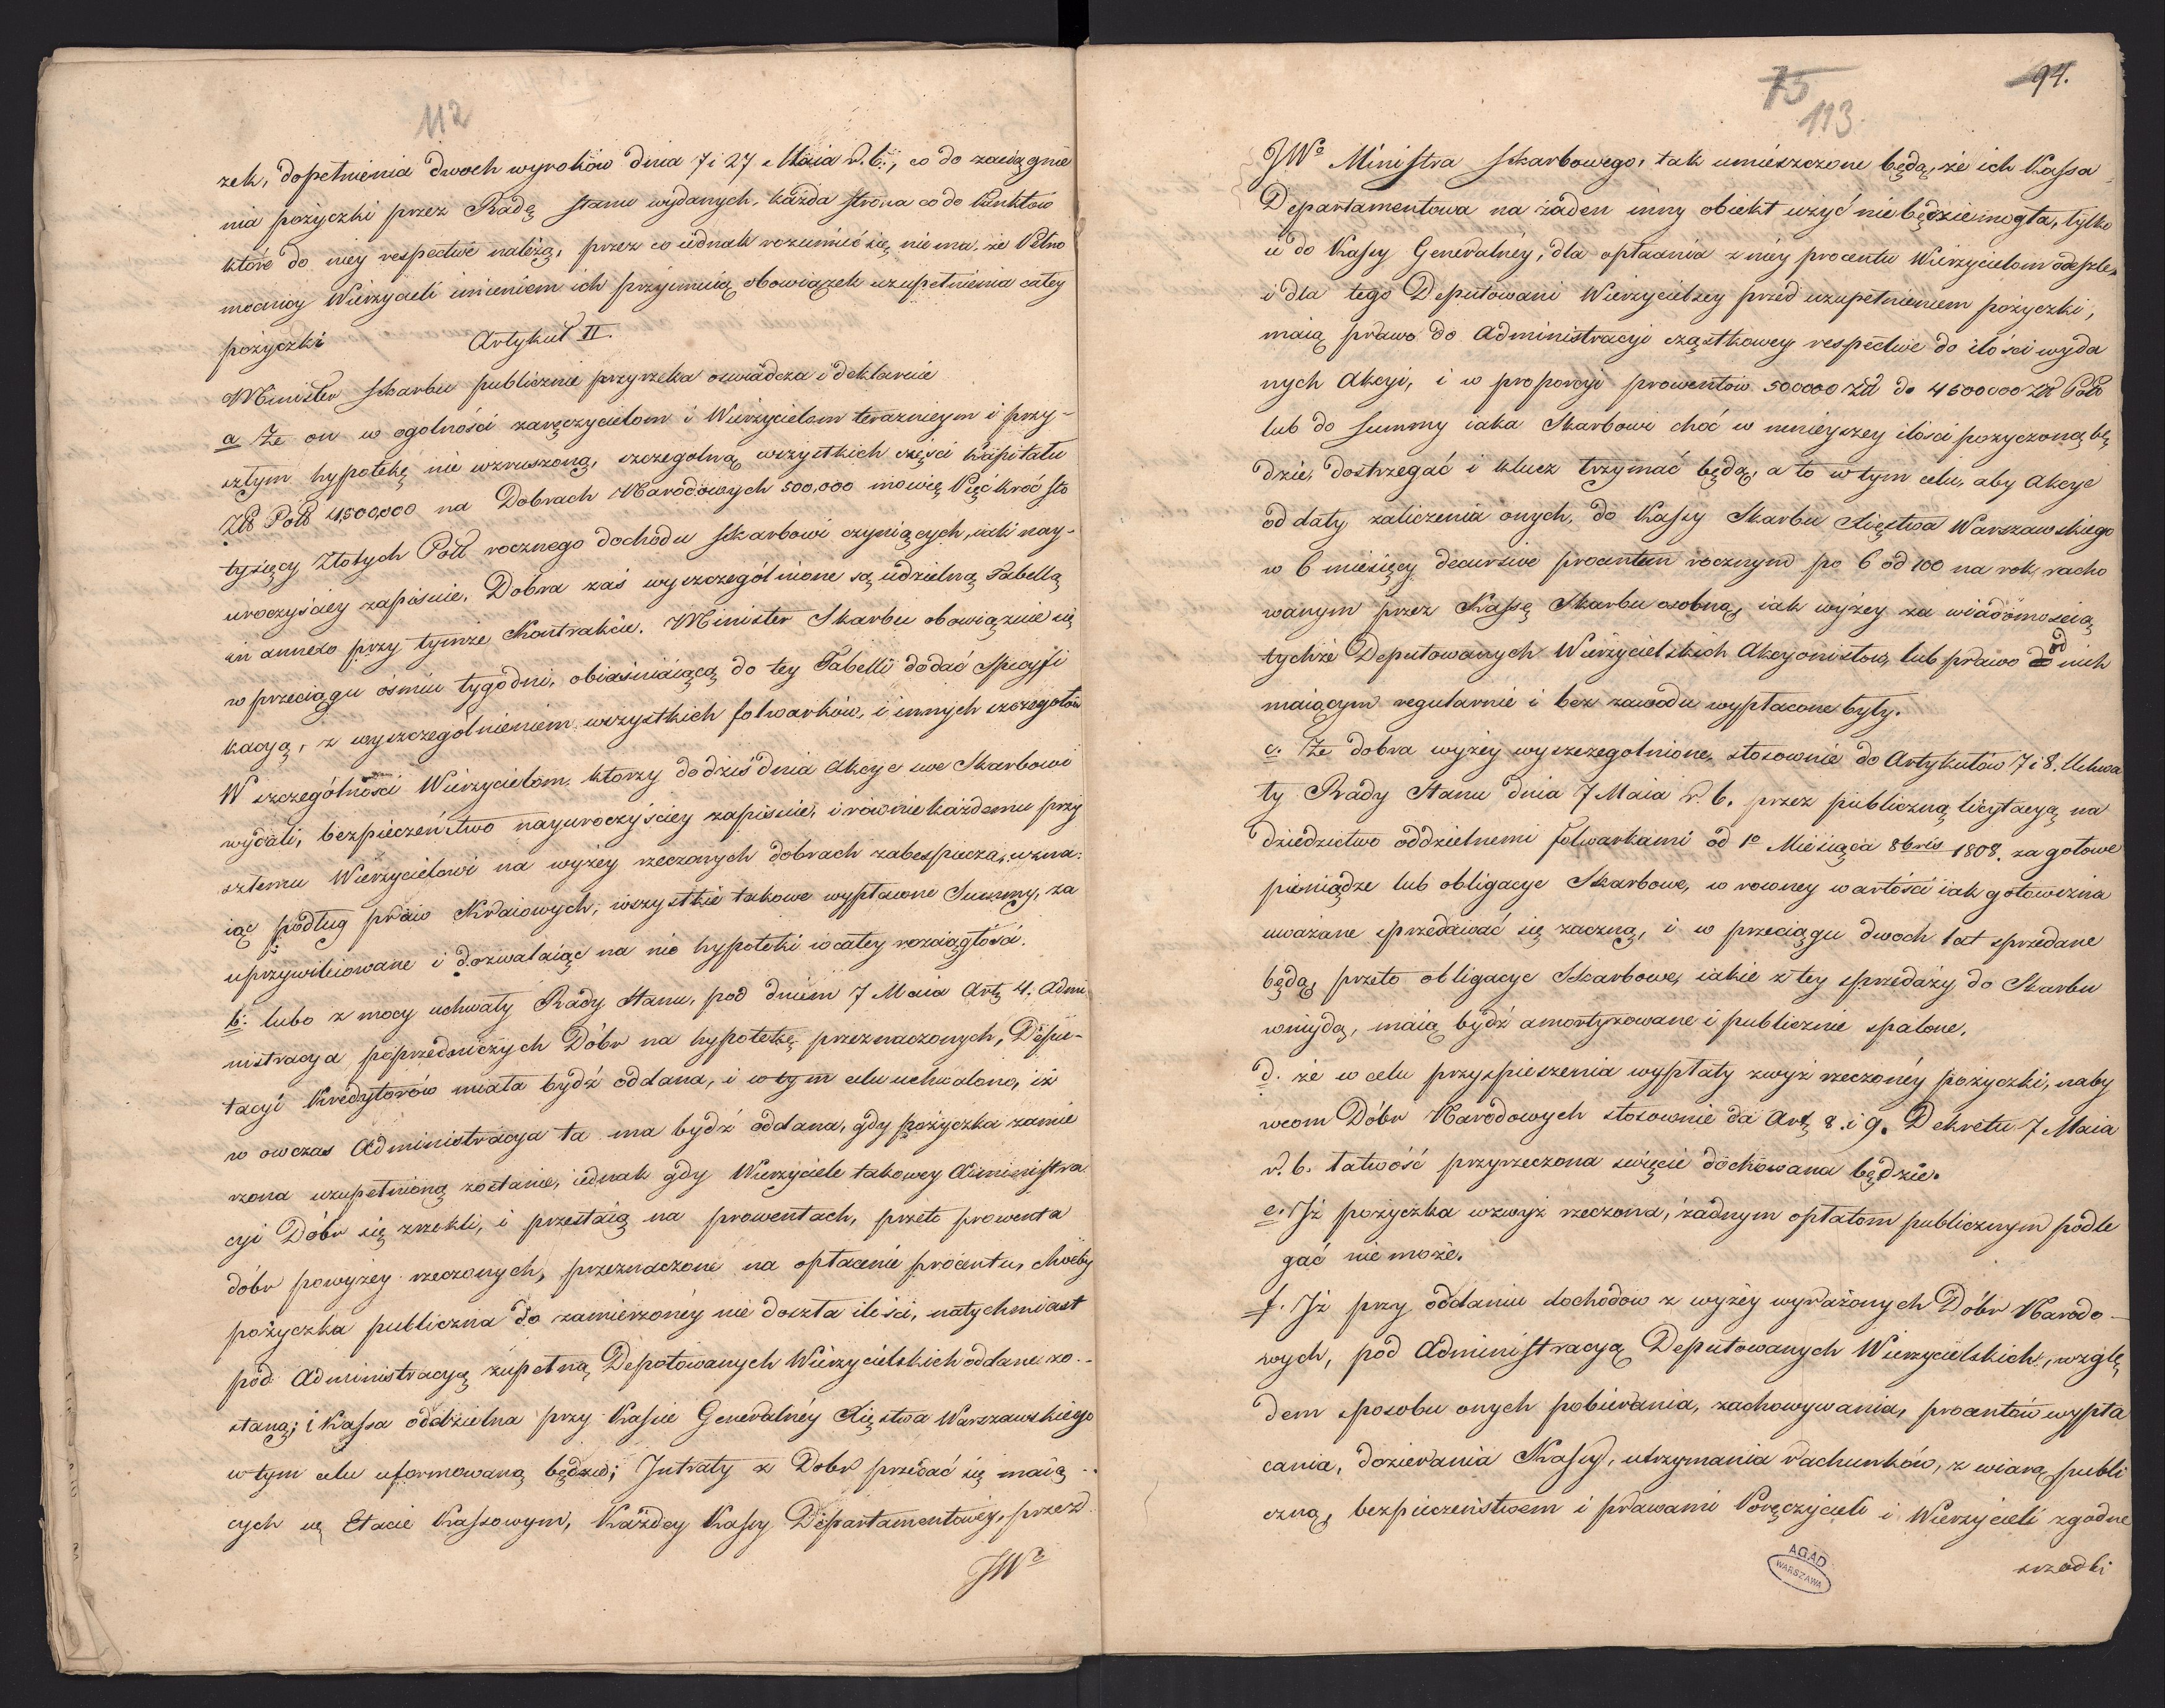 112
zek, dopełnienia dwoch wyroków dnia 7 i 27 Maia r. b., co do zaciągnie
nia pożyczki przez Radę stanu wydanych, każda strona co do Punktow
które do niey respective należą, przez co iednak rozumieć się niema, że Pełno
mocnicy Wierzycieli imieniem ich przyimuią obowiązek uzupełnienia całey
pożyczki Artykuł II.
Minister Skarbu publicznie przyrzeka oswiadcza i deklaruie
a Że on w ogolności zaręczycielom i Wierzycielom teraznieym i przy-
szłym hypotekę nie wzruszoną, szczegolną wszystkich części kapitału
Zł Pols 4,500,000 na Dobrach Narodowych 500,000 mowię Pięć kroć sto
tysięcy Złotych Pol rocznego dochodu Skarbowi czyniących, iak nay-
uroczyściey zapisuie, Dobra zaś wyszczególnione są udzielną Tabellą
in annexo przy tymże Kontrakcie. Minister Skarbu obowiązuie się
w przeciągu ośmiu tygodni, obiaśniaiącą do tey Tabelli dodać specyfi
kacyą, z wyszczególnieniem wszystkich folwarków, i innych szczegołów
W szczególności Wierzycielom, ktorzy do dziś dnia Akcye swe Skarbowi
wydali, bezpieczeństwo nayuroczyściey zapisuie, i rownie każdemu przy
szłemu Wierzycielowi na wyżey rzeczonych dobrach zabespiecza, uzna:
iąc podług praw Kraiowych, wszystkie takowe wypłacone Summy, za
uprzywiliowane i dozwalaiąc na nie hypoteki w całey rozciągłości.
b. lubo z mocy uchwały Rady Stanu, pod dniem 7 Maia Art. 4. Admi
nistracya poprzedniczych Dóbr na hypotekę przeznaczonych, Depu-
tacyi Kredytorów miała bydź oddana, i w tym celu uchwalono, iż
w owczas Administracya ta ma bydź oddana, gdy pożyczka zamie
rzona uzupełnioną zostanie, iednak gdy Wierzyciele takowey Administra
cyi Dóbr się zrzekli, i przestaią na prowentach, przeto prowenta
dóbr powyżey rzeczonych, przeznaczone na opłacenie procentu, choćby
pożyczka publiczna do zamierzonéy nie doszła ilości, natychmiast
pod Administracyą zupełną Depotowanych Wierzycielskich oddane zo-
staną; i Kassa oddzielna przy Kassie Generalnéy Xięstwa Warszawskiego
w tym celu uformowaną będzie; Intraty z Dobr przedać się maią
cych się Etacie Kassowym, Każdey Kassy Departamentowéy, przez
JWo
75
94.
113
JWo Ministra Skarbowego, tak umieszczone będą, że ich Kassa
Departamentowa na żaden inny obiekt użyć niebędzie mogła, tylko
ie do Kassy Generalnéy, dla opłacania z niéy procentu Wierzycielom odeszle
i dla tego Deputowani Wierzycielscy przed uzupełnieniem pożyczki,
maią prawo do Administracyi cząstkowey respective do ilości wyda
nych Akcyi, i w proporcyi prowentów 500000 Zł do 4500000 Zł Pols
lub do Summy iaka Skarbowi choć w mnieyszey ilości pozyczoną bę
dzie, dostrzegać i klucz trzymać będą, a to w tym celu, aby Akcye
od daty zaliczenia onych, do Kassy Skarbu Xięstwa Warszawskiego
w 6 miesięcy decursive procentem rocznym po 6 od 100 na rok racho
wanym przez Kassę Skarbu osobną, iak wyżey za wiadomością
tychże Deputowanych Wierzycielskich Akcyonistow, lub prawo od nich
maiącym regularnie i bez zawodu wypłacone były.
c. Że dobra wyżey wyszczegolnione, stosownie do Artykułów 7 i 8. Uchwa
ły Rady Stanu dnia 7 Maia r. b. przez publiczną licytacyą na
dziedzictwo oddzielnemi folwarkami od 1o Miesiąca 8bris 1808. za gotowe
pieniądze lub obligacye Skarbowe, w rowney wartości iak gotowizna
uważane sprzedawać się zaczną, i w przeciągu dwoch lat sprzedane
będą, przeto obligacye Skarbowe, iakie z tey sprzedaży do Skarbu
wniydą, maią bydź amortyzowane i publicznie spalone.
d. że w celu przyspieszenia wypłaty zwyż rzeczonéy pożyczki, naby
wcom Dóbr Narodowych stosownie da Art. 8. i 9. Dekretu 7 Maia
r. b. łatwość przyrzeczona święcie dochowana będzie.
e. Iż pożyczka wzwyż rzeczona, żadnym opłatom publicznym podle
gać nie może.
f. Iż przy oddaniu dochodow z wyżey wyrażonych Dóbr Narodo-
wych, pod Administracyą Deputowanych Wierzycielskich, wzglę
dem sposobu onych pobierania, zachowywania, procentów wypła
cania, dozierania Kassy, utrzymania rachunków, z wiarą publi
czną, bezpieczeństwem i prawami Poręczycieli i Wierzycieli zgodne
szrodki
AGAD
WARSZAWA